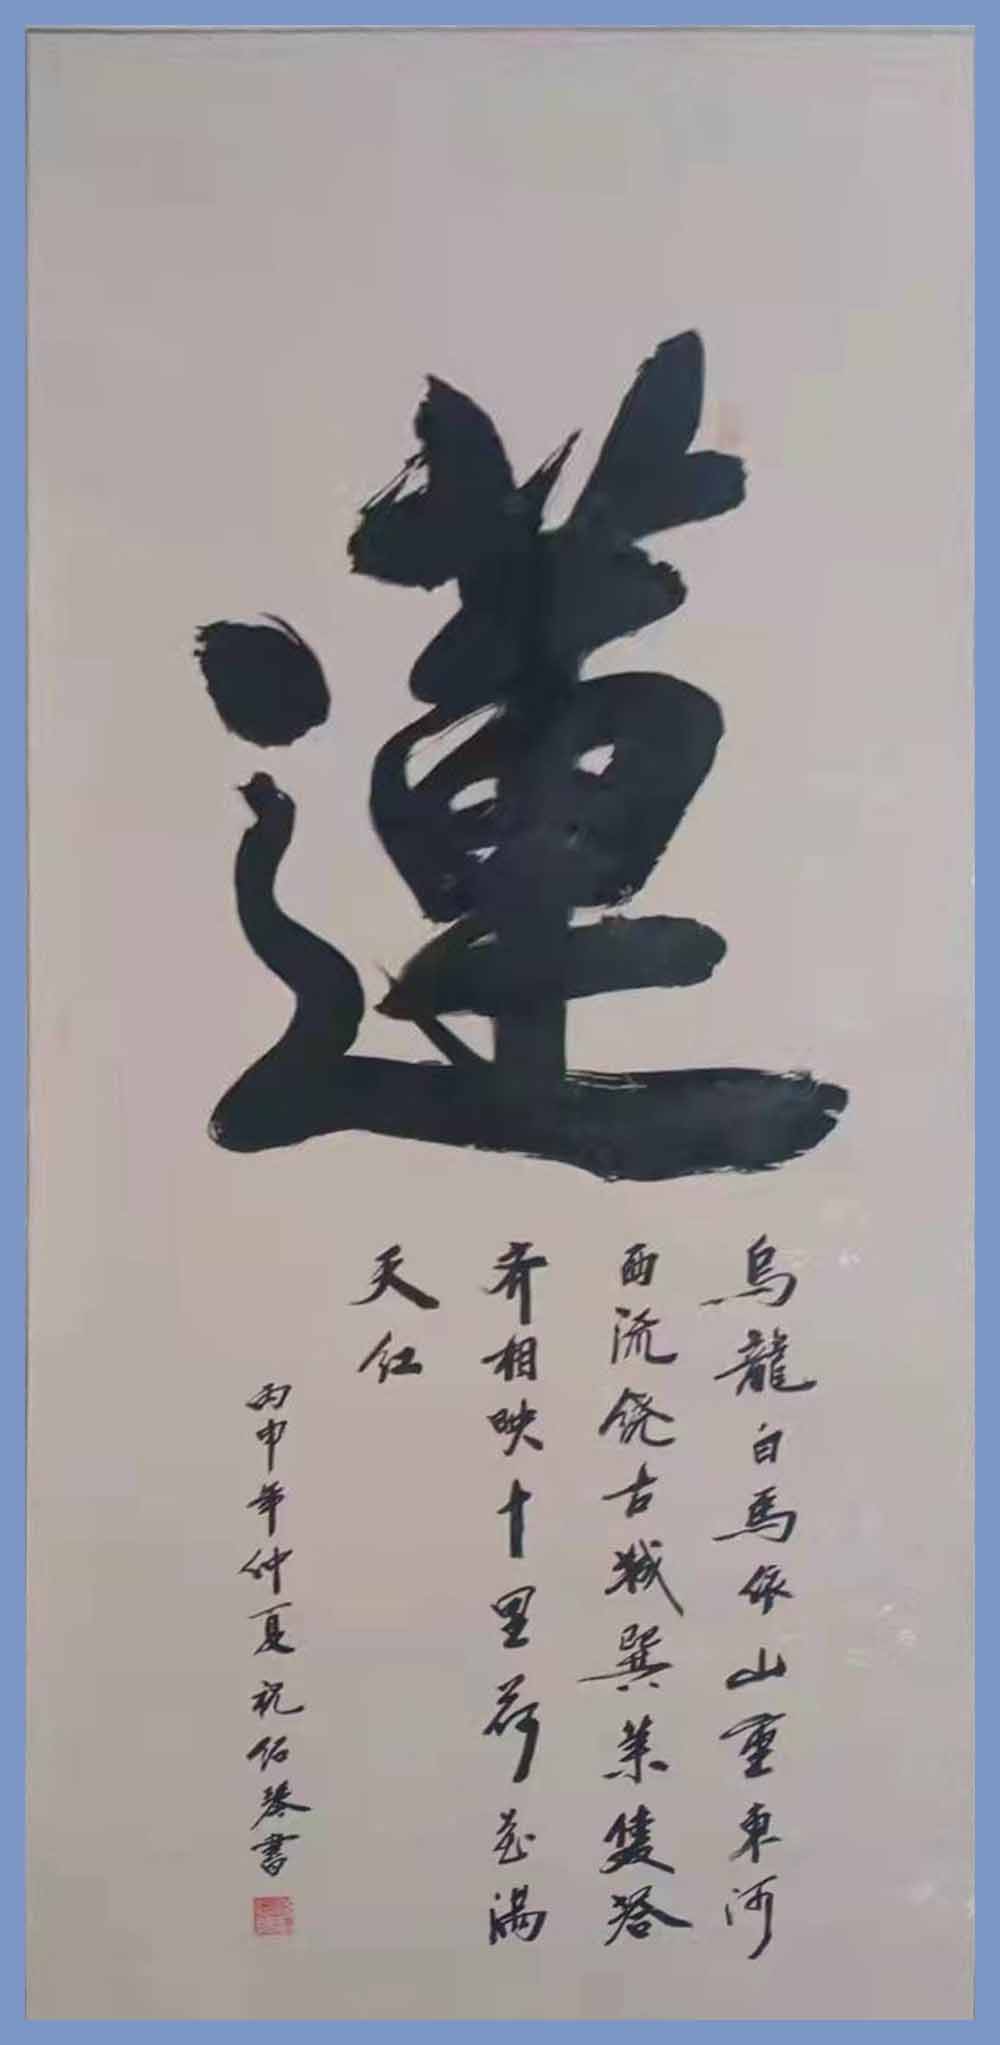 蓮
烏龍白馬依山重東河
西流绕古城巽峯雙塔
齐相映十里荷花满
天红
丙申年仲夏祝紹琴書